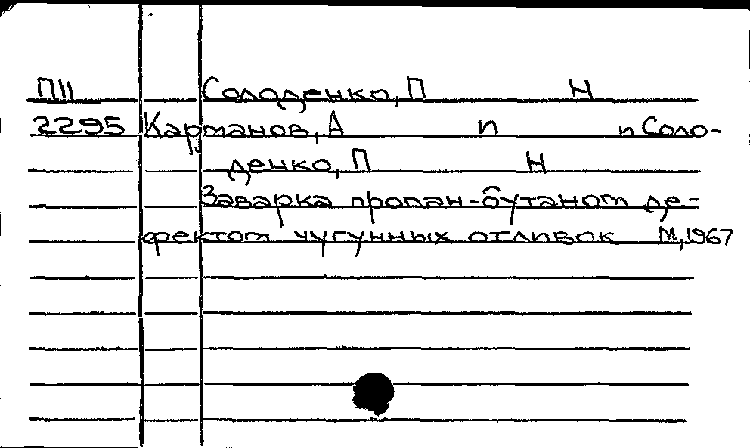 П11 Солоденко, П Н
2295 Карманов, А П и Соло-
денко, П Н
Заварка пропан-бутаном де-
фектом чугунных отливок М, 1967